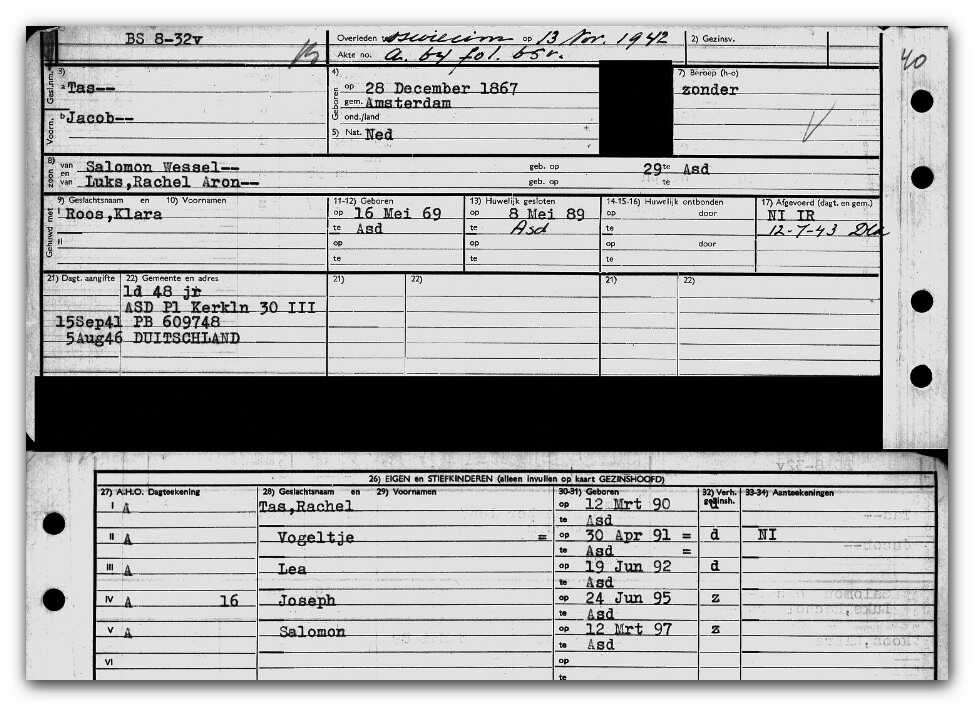 BS 8-32v
Overleden te op 13 Nov. 1942
2) Gezinsv.
Akte no. a. by fol. bsv.
40
3)
Gesl.nm.
a Tas--
4)
Geboren
op 28 December 1867
7) Beroep (h-o)
zonder
gem. Amsterdam
Voorn.
b Jacob--
ond./land
5) Nat. Ned
8)
zoon
van Salomon Wessel-- geb. op 29te Asd
en
van Luks,Rachel Aron-- geb. op te
9) Geslachtsnaam en 10) Voornamen
11-12) Geboren
13) Huwelijk gesloten
14-15-16) Huwelijk ontbonden
17) Afgevoerd (dagt. en gem.)
Gehuwd met
I Roos,Klara
op 16 Mei 69
op 8 Mei 89
op door
NI IR
te Asd
te Asd
te
12-7-43
II
op
op
op door
te
te
te
21) Dagt. aangifte
22) Gemeente en adres
21)
22)
21)
22)
ld 48 jr
ASD Pl Kerkln 30 III
15Sep41 PB 609748
5Aug46 DUITSCHLAND
26) EIGEN en STIEFKINDEREN (alleen invullen op kaart GEZINSHOOFD)
27) A.H.O. Dagteekening
28) Geslachtsnaam en 29) Voornamen
30-31) Geboren
32) Verh. gezinsh.
33-34) Aanteekeningen
I A Tas,Rachel op 12 Mrt 90 d
te Asd
II A Vogeltje = op 30 Apr 91 = d NI
te Asd =
III A Lea op 19 Jun 92 d
te Asd
IV A 16 Joseph op 24 Jun 95 z
te Asd
V A Salomon op 12 Mrt 97 z
te Asd
VI op
te